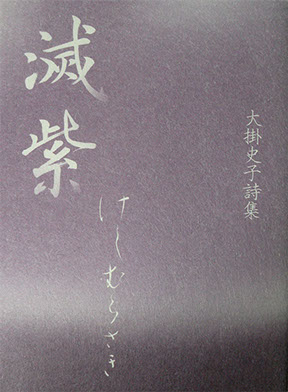 大掛史子詩集
滅紫
けしむらさき